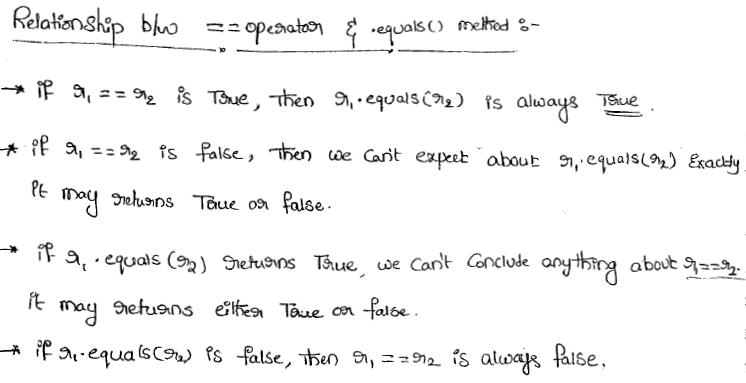 Relationship b/w == operator & .equals() method :-
→ if r1 == r2 is True, then r1.equals(r2) is always True.
→ if r1 == r2 is false, then we can't expect about r1.equals(r2) Exactly
it may returns True or false.
→ if r1.equals(r2) returns True, we can't Conclude anything about r1==r2.
it may returns either True or false.
→ if r1.equals(r2) is false, then r1 == r2 is always false.